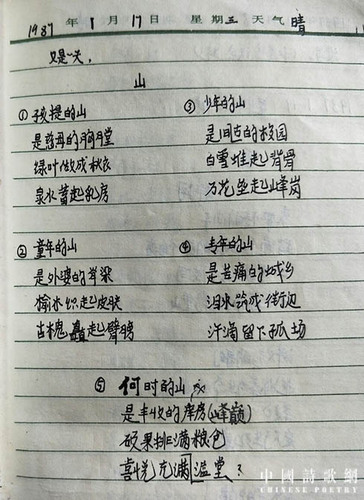 1987年1月17日 星期五 天气晴
又是一天,
山
① 孩提的山
是慈母的胸膛
绿叶做成秋衣
泉水蓄起乳房
② 童年的山
是外婆的脊梁
榆木织起皮肤
古槐矗起臂膀
③ 少年的山
是回古的校园
白雪堆起背骨
万花垫起山峰岗
④ 青年的山
是苦痛的城乡
泪水筑成街边
汗滴留下孤坊
⑤ 何时的山
是丰收的库房(峰巅)
硕果排满粮仓
喜悦充满溢堂?
中國詩歌網
CHINESE POETRY